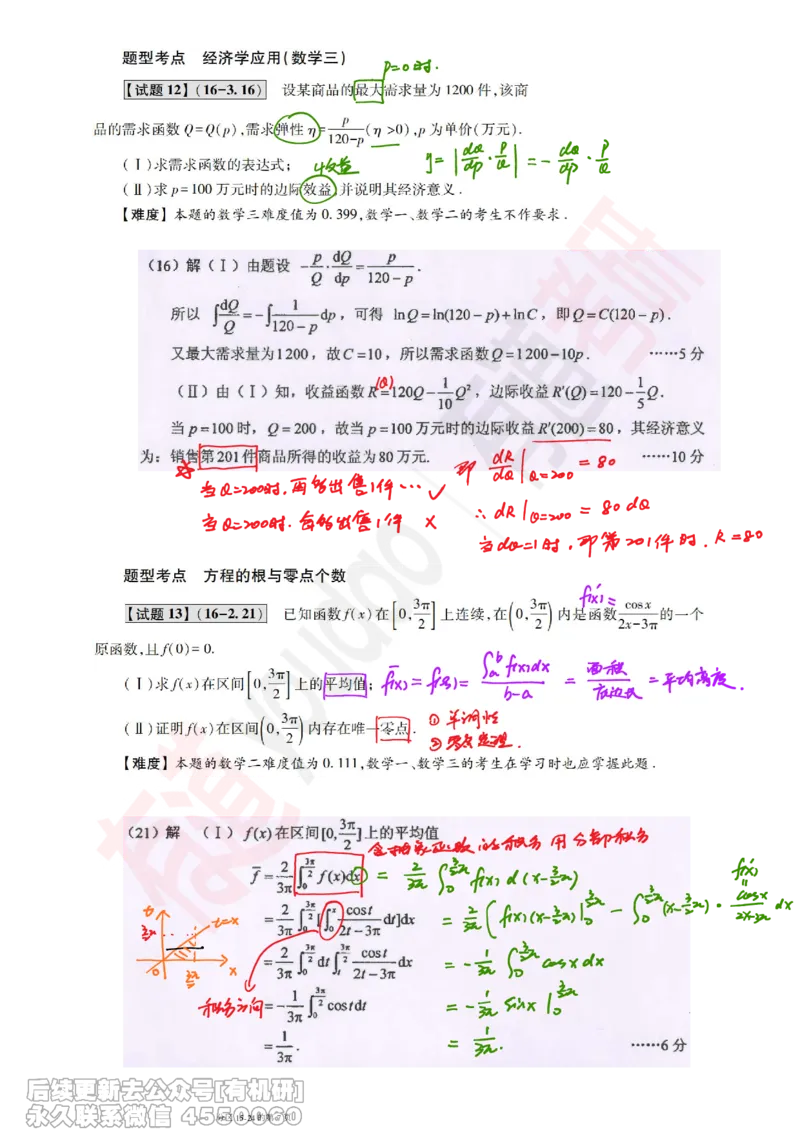 题型考点 经济学应用(数学三)
p=0时.
【试题12】(16-3.16) 设某商品的最大需求量为1200件,该商
品的需求函数Q=Q(p),需求弹性η=p/(120-p)(η>0),p为单价(万元).
(Ⅰ)求需求函数的表达式;
收益
η=|dQ/dp·p/Q|=-dQ/dp·p/Q
(Ⅱ)求p=100万元时的边际效益,并说明其经济意义.
【难度】本题的数学三难度值为0.399,数学一、数学二的考生不作要求.
(16)解 (Ⅰ)由题设 -p/Q·dQ/dp=p/(120-p).
所以 ∫dQ/Q=-∫1/(120-p)dp,可得 lnQ=ln(120-p)+lnC,即Q=C(120-p).
又最大需求量为1200,故C=10,所以需求函数Q=1200-10p. ……5分
(Ⅱ)由(Ⅰ)知,收益函数R(Q)=120Q-1/10Q²,边际收益R′(Q)=120-1/5Q.
当p=100时,Q=200,故当p=100万元时的边际收益R′(200)=80,其经济意义
为:销售第201件商品所得的收益为80万元. ……10分
即 dR/dQ|Q=200 =80
当Q=200时,再多出售1件…✓
∴dR|Q=200=80dQ
当Q=200时.每多出售1件 ×
当dQ=1时,即第201件时.R=80
题型考点 方程的根与零点个数
f′(x)=
【试题13】(16-2.21) 已知函数f(x)在[0,3π/2]上连续,在(0,3π/2)内是函数cosx/(2x-3π)的一个
原函数,且f(0)=0.
(Ⅰ)求f(x)在区间[0,3π/2]上的平均值;
f̄(x)=f(ξ)=∫ₐᵇf(x)dx/(b-a)=面积/底边长=平均高度.
(Ⅱ)证明f(x)在区间(0,3π/2)内存在唯一零点.
①单调性
②零点定理.
【难度】本题的数学二难度值为0.111,数学一、数学三的考生在学习时也应掌握此题.
(21)解 (Ⅰ)f(x)在区间[0,3π/2]上的平均值
含抽象函数的积分用分部积分
f̄=2/3π∫₀^(3π/2)f(x)dx
=2/3π∫₀^(3π/2)f(x)d(x-3/2π)
f′(x)
=2/3π∫₀^(3π/2)[∫₀ˣcost/(2t-3π)dt]dx
=2/3π(f(x)(x-3/2π)|₀^(3/2π)-∫₀^(3/2π)(x-3/2π)·cosx/(2x-3π)dx
t
t=x
3/2π
0
3/2π
x
=2/3π∫₀^(3π/2)dt∫ₜ^(3π/2)cost/(2t-3π)dx
=-1/3π∫₀^(3/2π)cosxdx
积分方向
=-1/3π∫₀^(3π/2)costdt
=-1/3π sinx|₀^(3/2π)
=1/3π. ……6分
=1/3π.
有道考研
youdao
后续更新去公众号[有机研]
永久联系微信 4550060